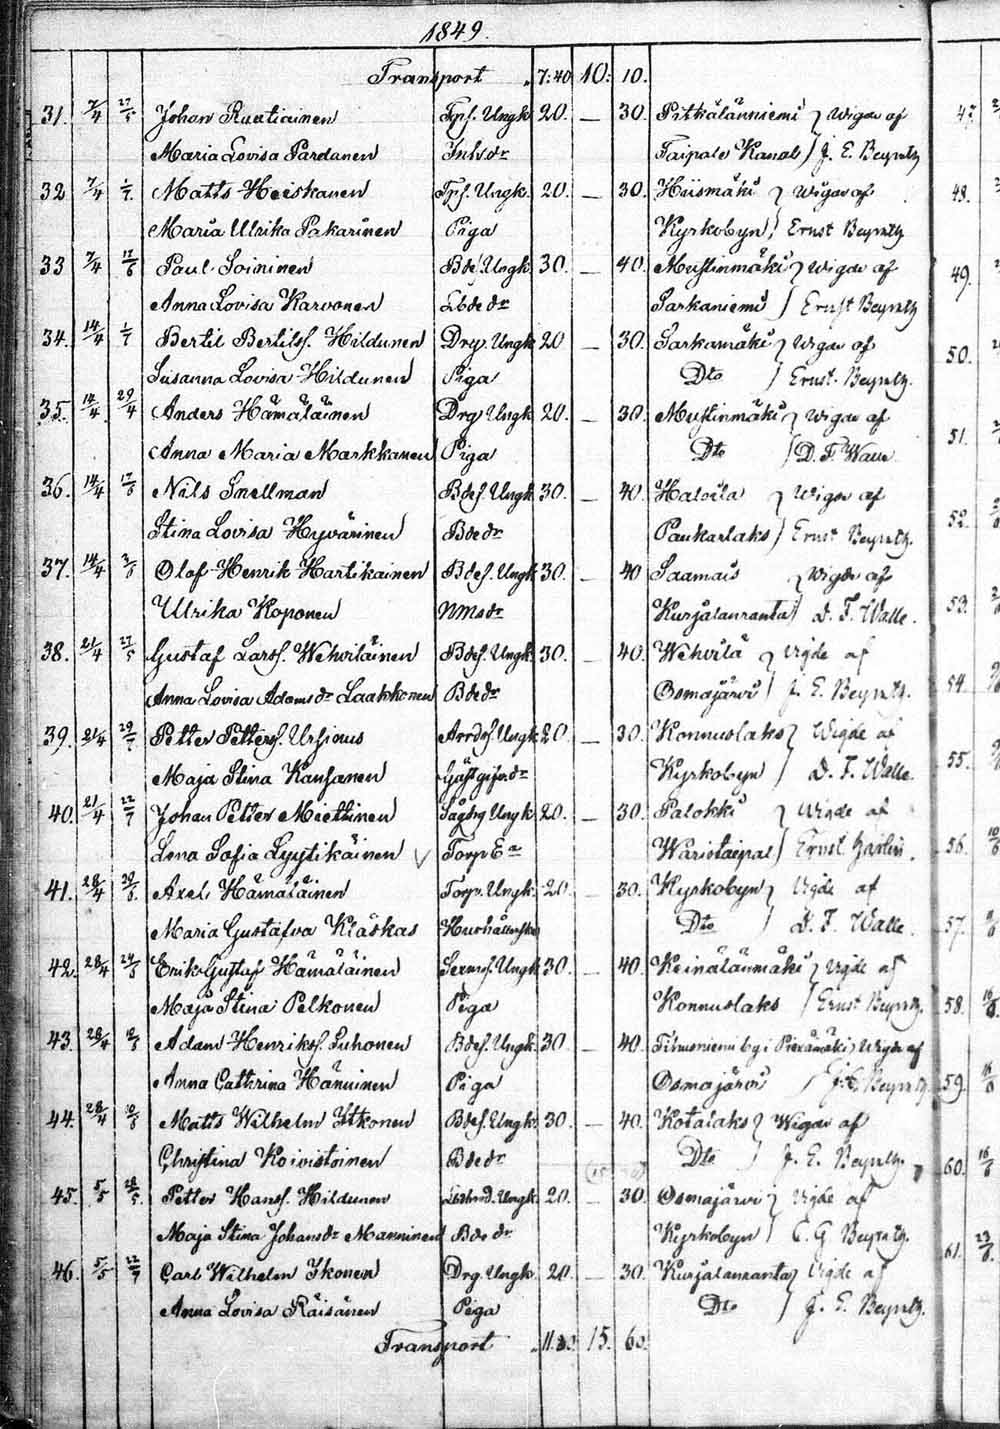 1849.
Transport 7:40 10: 10.
31. 7/4 27/5 Johan Ruotiainen Tps. Ungk 20. — 30. Pitkälänniemi } Wigde af
Maria Lovisa Pardanen Inh.dr Taipale Kanal } J. E. Beyrath
32 7/4 1/7 Matts Heiskanen Tps. Ungk. 20. — 30. Hiismäki } Wigde af
Maria Ulrika Pakarinen Piga Kyrkobyn } Ernst Beyrath
33 7/4 17/6 Paul Soininen Bdes. Ungk. 30. — 40. Mustinmäki } Wigde af
Anna Lovisa Karvonen Lbde dr Sarkaniemi } Ernst Beyrath
34. 14/4 1/7 Bertil Bertils. Hildunen Drg. Ungk 20 — 30. Sarkamäki } Wigde af
Susanna Lovisa Hildunen Piga Dto } Ernst Beyrath.
35. 14/4 29/4 Anders Hämäläinen Drg Ungk 20. — 30. Mustinmäki } Wigde af
Anna Maria Markkanen Piga Dto } D. F. Walle
36. 14/4 17/6 Nils Snellman Bdes. Ungk. 30. — 40. Halola } Wigde af
Stina Lovisa Hyvärinen Bde dr Paukarlaks } Ernst Beyrath.
37. 14/4 Olof Henrik Hartikainen Bdes. Ungk 30. — 40 Saamais } Wigde af
Ulrika Koponen Nms dr Kurjalanranta } D. F. Walle.
38. 21/4 27/5 Gustaf Larss. Wehviläinen Bdes. Ungk 30. — 40. Wehvilä } Vigde af
Anna Lovisa Adams dr Laakkonen Bde dr Osmajärvi } J. E. Beyrath.
39. 21/4 Petter Petters. Ursinus Ungk 20. — 30. Konnuslaks } Wigde af
Maja Stina Kansanen Gästgifv. dr Kyrkobyn } D. F. Walle.
40. 21/4 22/7 Johan Petter Miettinen Ungk 20. — 30. Palokki } Wigde af
Lena Sofia Lyytikäinen √ Torp Ea Waristaipal } Ernst
41. 28/4 Axel Hämäläinen Torp. Ungk. 20. — 30. Kyrkobyn } Vigde af
Maria Gustafva Kläskas Dto } D. F. Walle.
42. 28/4 24/6 Erik Gustaf Hämäläinen Ungk 30. — 40. Keinälänmäki } Vigde af
Maja Stina Pelkonen Piga Konnuslaks } Ernst Beyrath.
43. 28/4 Adam Henriks. Luhonen Bdes. Ungk. 30. — 40. i Pieksämäki } Wigde af
Anna Cathrina Hänninen Piga Osmajärvi } J. E. Beyrath
44. 28/4 10/6 Matts Wilhelm Itkonen Bdes. Ungk. 30. — 40. Kotalaks } Wigde af
Christina Koivistoinen Bde dr Dto } J. E. Beyrath.
45. 5/5 28/5 Petter Hans. Hildunen Ungk. 20. — 30. Osmajärvi } Vigde af
Maja Stina Johans dr Manninen Bde dr Kyrkobyn } C. G. Beyrath.
46. 5/5 22/7 Carl Wilhelm Ikonen Drg. Ungk. 20. — 30. Kurjalanranta } Vigde af
Anna Lovisa Räisänen Piga Dto } J. E. Beyrath.
Transport 15. 60.
47.
48.
49.
50.
51.
52.
53.
54.
55.
56.
57.
58.
59.
60.
61.